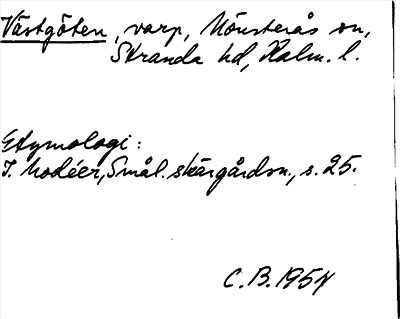 Västgöten, varp, Mönsterås sn,
Stranda hd, Kalm. l.
Etymologi:
I. Modéer, Smål. skärgårdsn., s. 25.
C.B. 1954